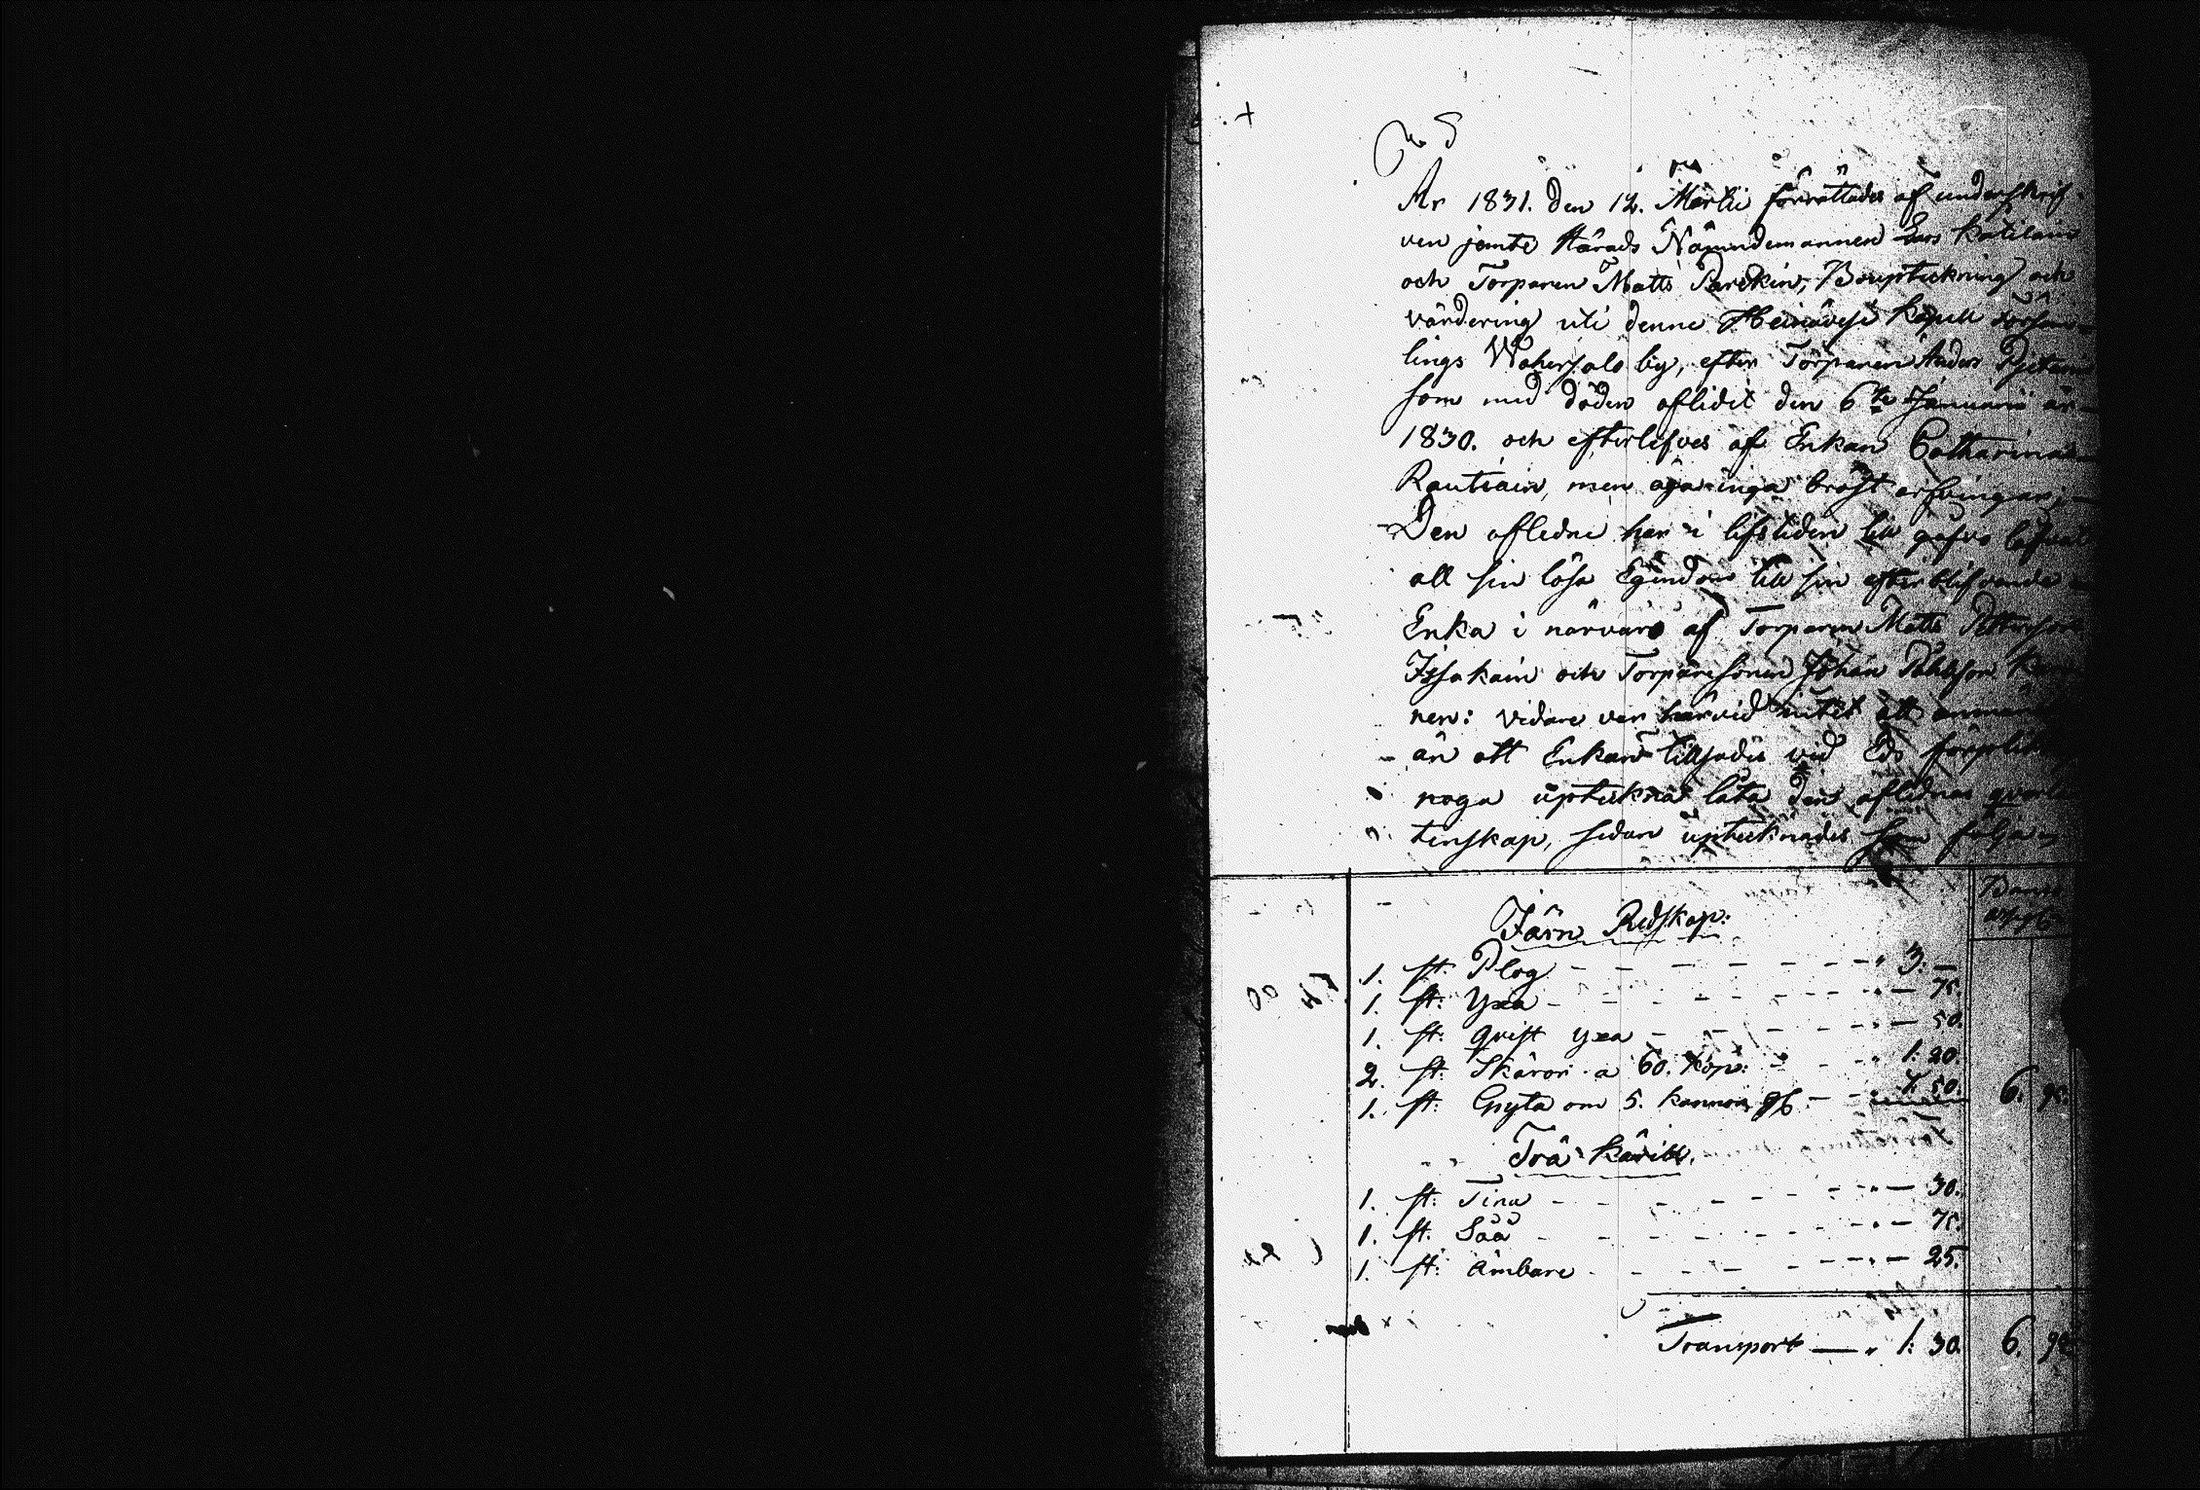 N° 5
År 1831. den 12. Martii förrättades af underskrif-
ven jemte Härads Nämndemannen Lars Kätilain
och Torparen Matts Parskin, Boupteckning och
värdering uti denne Heinävesi Kapell försam-
lings Wahersalo by, efter Torparen Anders
som med döden aflidit den 6te Januarii år
1830. och efterlefves af Enkan Catharina
Rautiain, men äga inga bröst arfvingar,
Den aflidne har i lifstiden till gåfvo
all sin lösa Egendom till sin efterblifvande
Enka i närvaro af Torparen Matts Pettersson
Issakain och Torparesonen Johan Påhlsson
nen: vidare var härvid intet att
än att Enkan tillsades vid Ed
noga upteckna låta den aflidnes
tenskap, sedan uptecknades som följer
Järn Redskap:
1. st. Plog - - - " 3. —
1. st. Yxa - - - " — 75.
1. st. qvist yxa - - - " — 50.
2. st. Skäror a 60. kop: - " 1. 20.
1. st. Gryta om 5. kannor - - 1. 50. 6. 95.
Trä käril.
1. st. Tina - - - " — 30.
1. st. Såå - - - " — 75.
1. st. ämbare - - - " — 25.
Transport — " 1. 30. 6. 95